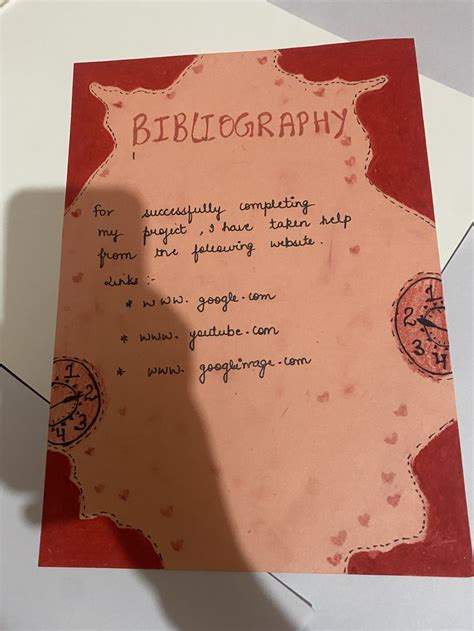 BIBLIOGRAPHY
For successfully completing
my project, I have taken help
from the following website.
Links :-
* www. google.com
* www. youtube.com
* www. googleimage.com
1
2
3
4
1
2
3
4